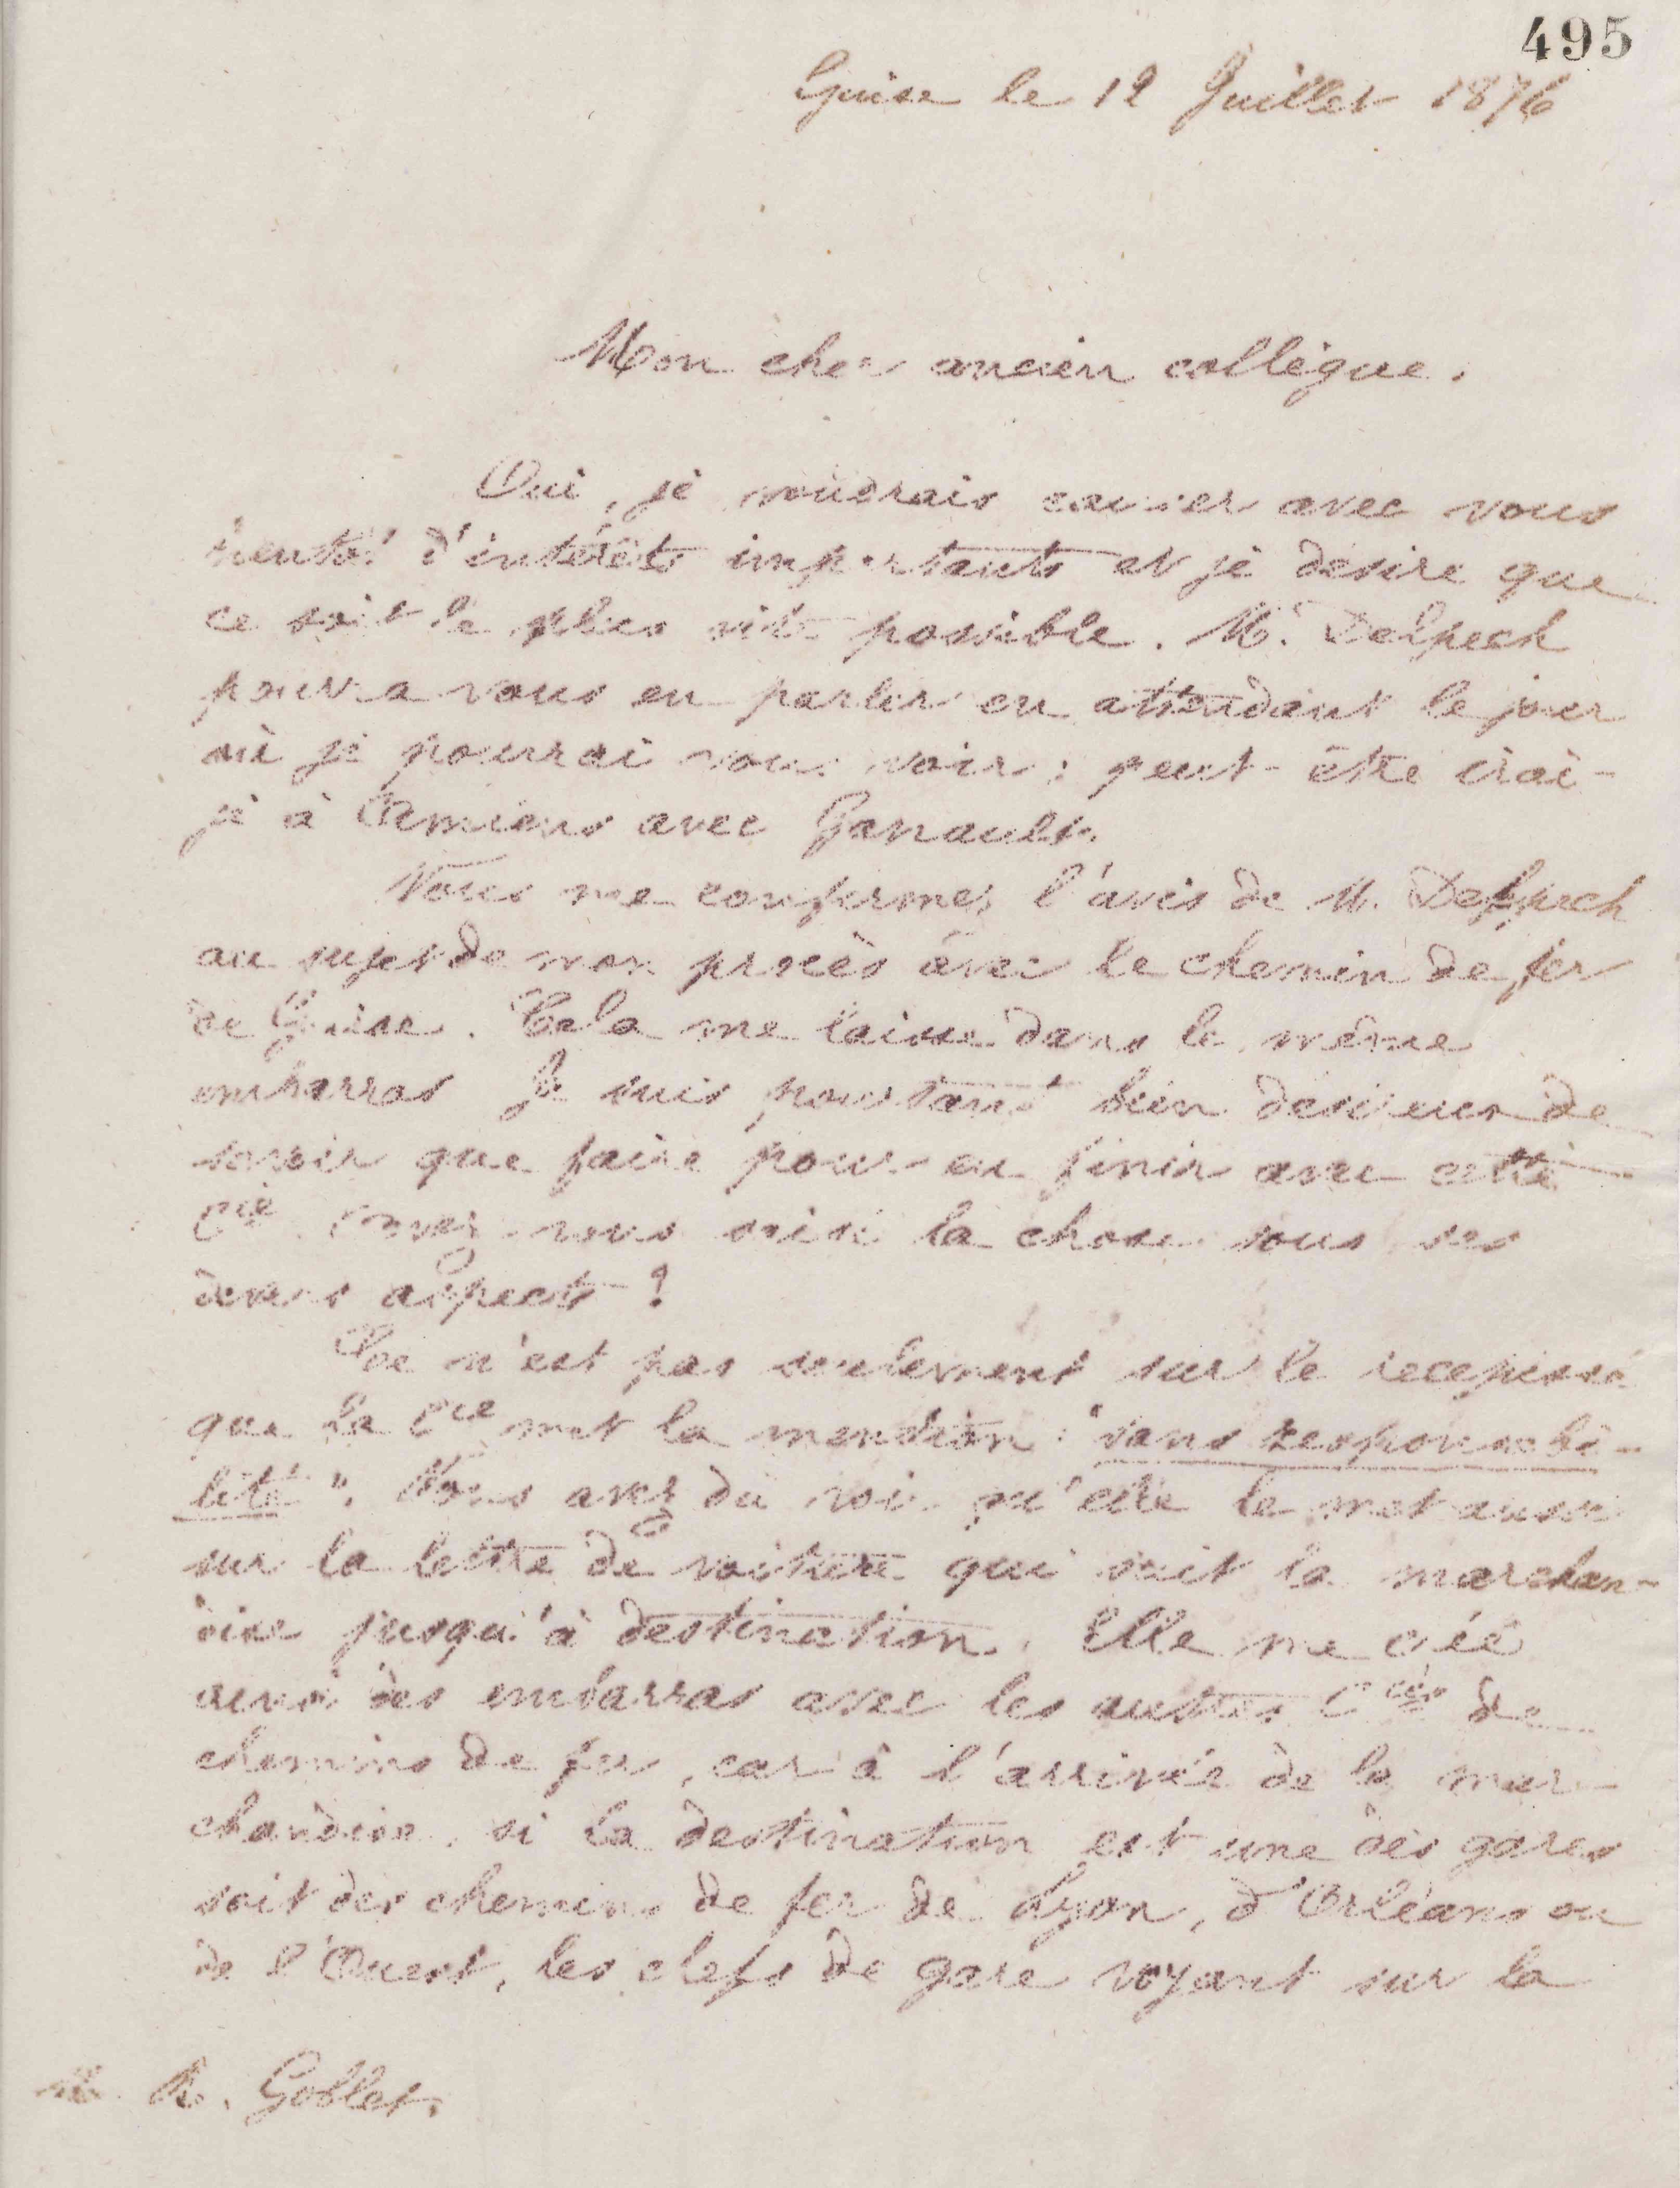 495
Guise le 12 Juillet 1876
Mon cher ancien collègue.
Oui, je voudrais causer avec vous
bientôt d'intérêts importants et je désire que
ce soit le plus vite possible. M. Delpech
pourra vous en parler en attendant le jour
où je pourrai vous voir : peut-être irai-
je à Amiens avec Ganault.
Vous me confirmez l'avis de M. Delpech
au sujet de mon procès avec le chemin de fer
de Guise. Cela me laisse dans le même
embarras Je suis pourtant bien désireux de
savoir que faire pour en finir avec cette
Cie. Avez-vous saisi la chose sous ses
divers aspects ?
Ce n'est pas seulement sur le recepissé
que la Cie met la mention : "sans responsabi-
lité". Vous avez du voir qu'elle le met aussi
sur la lettre de voiture qui suit la marchan-
dise jusqu'à destination. Elle me créé
ainsi des embarras avec les autres Cies de
chemins de fer, car à l'arrivée de la mar-
chandise, si la destination est une des gares
soit des chemins de fer de Lyon, d'Orléans ou
de l'Ouest, les chefs de gare voyant sur la
M. R. Goblet.